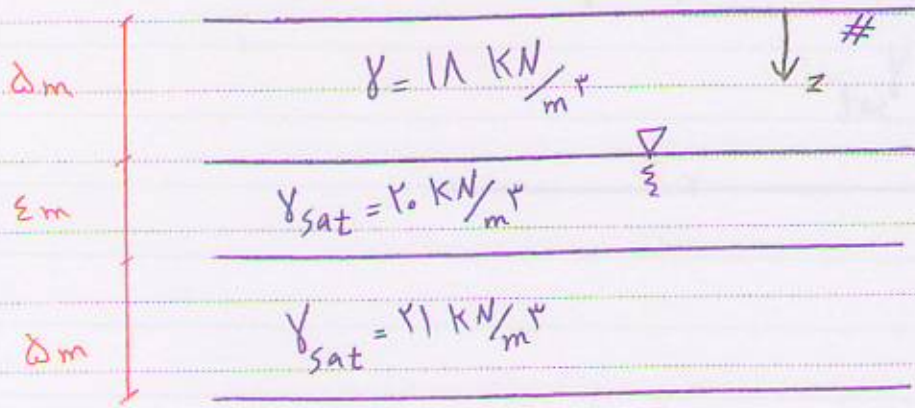 #
۵m
γ = ۱۸ KN/m۳
z
۴m
γsat = ۲۰ KN/m۳
۵m
γsat = ۲۱ KN/m۳